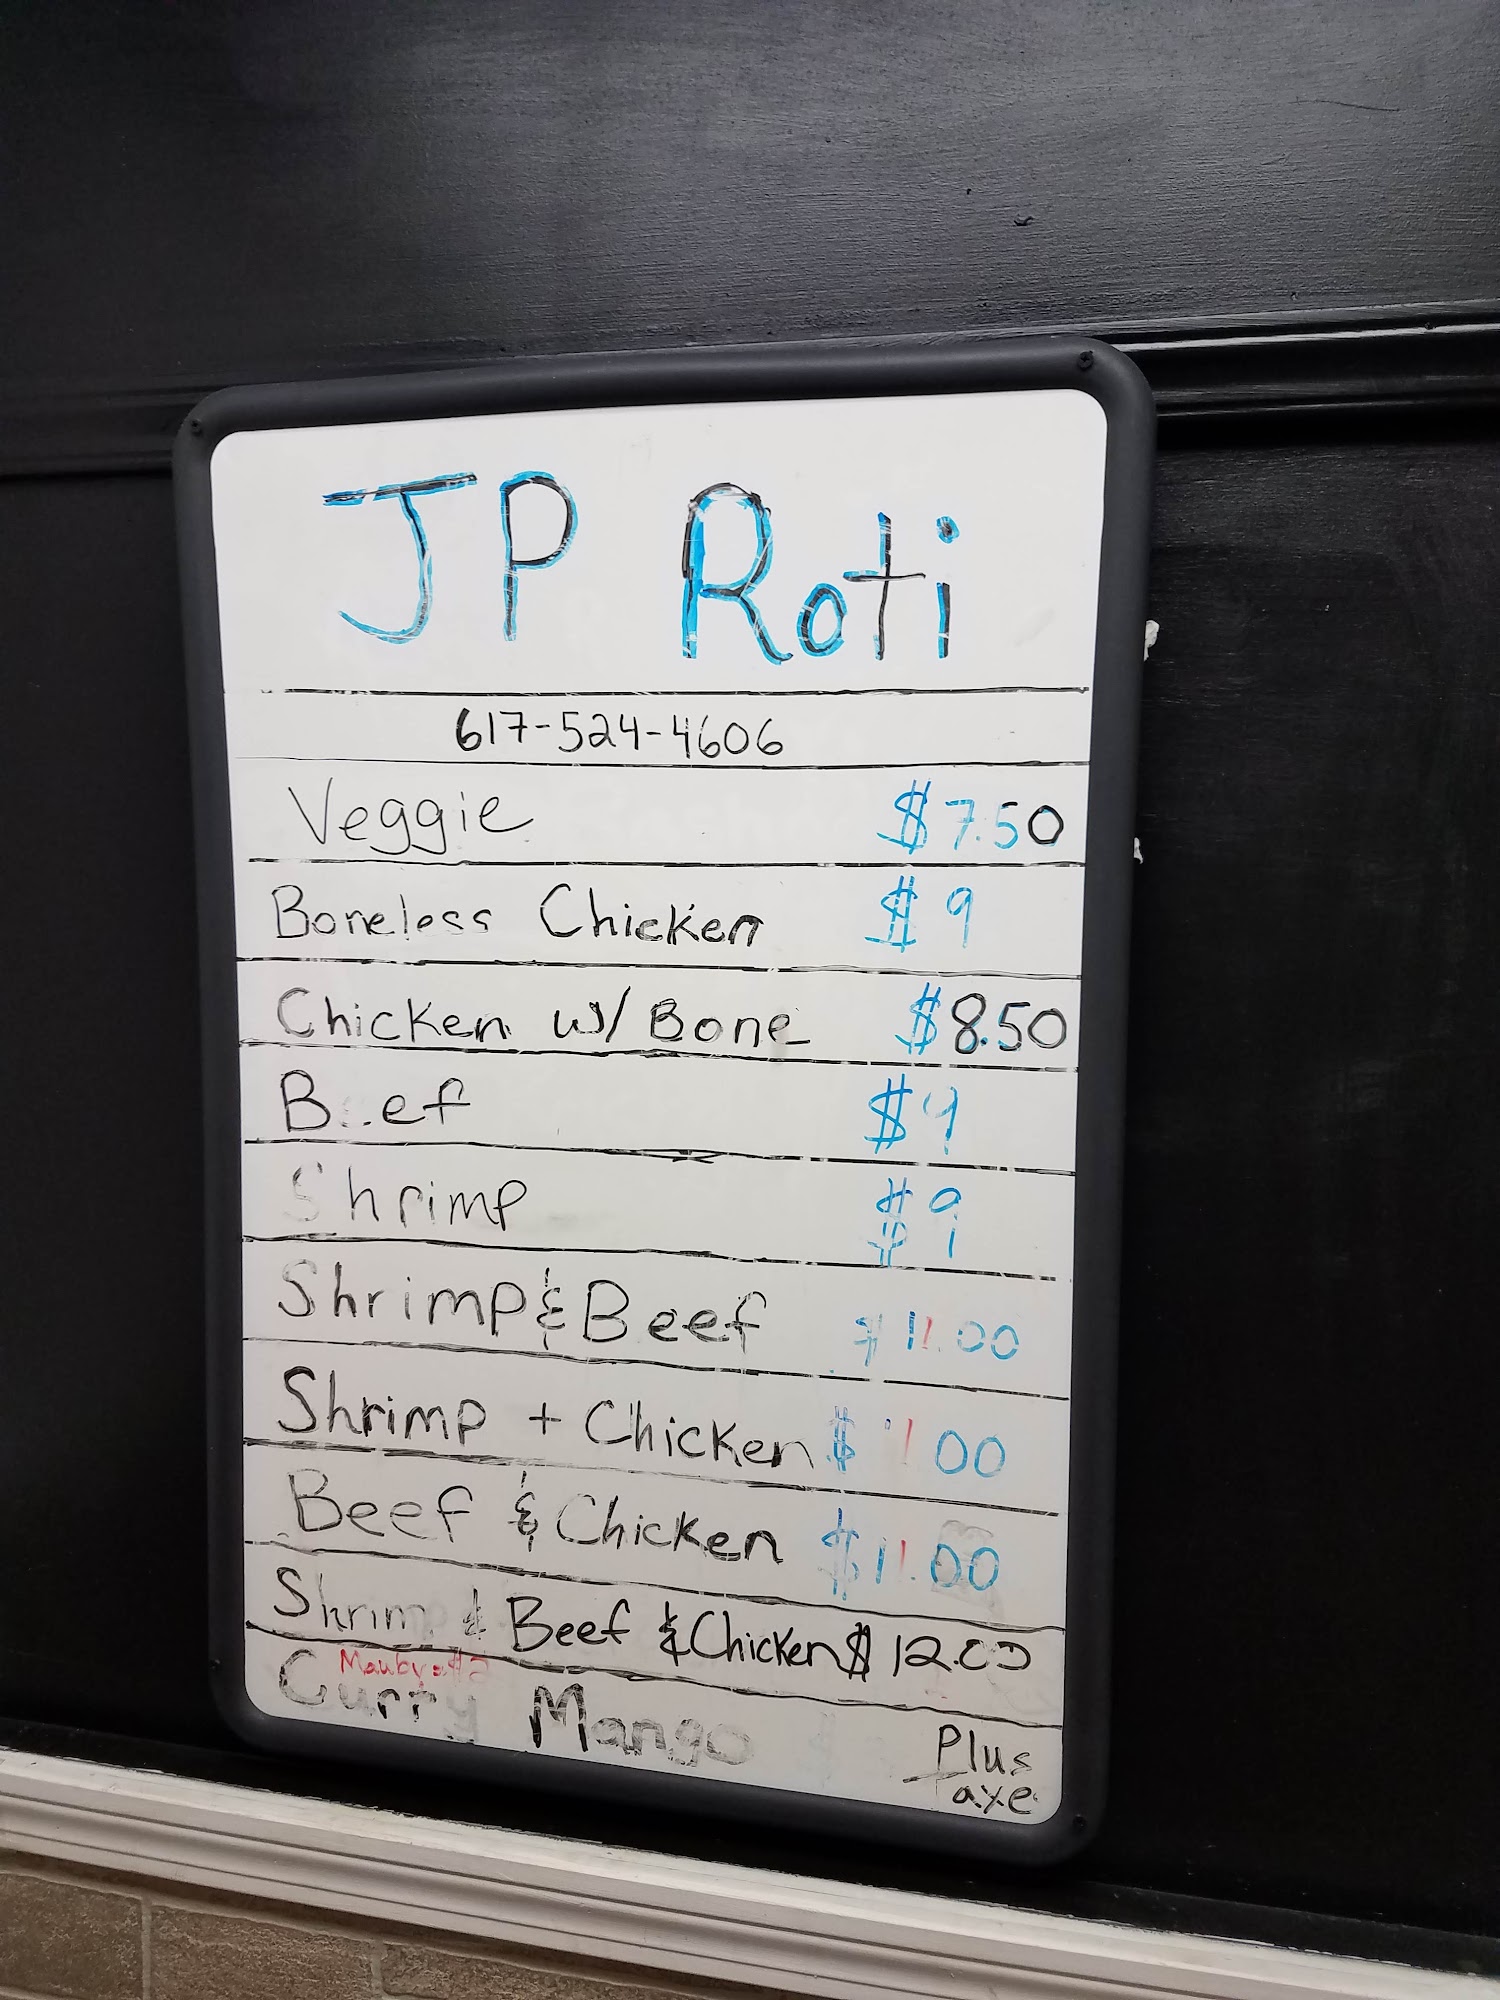 JP Roti
617-524-4606
Veggie $7.50
Boneless Chicken $9
Chicken w/ Bone $8.50
Beef $9
Shrimp $9
Shrimp & Beef $11.00
Shrimp + Chicken $11.00
Beef & Chicken $11.00
Shrimp & Beef & Chicken $12.00
Mauby $2
Curry Mango
Plus
taxe